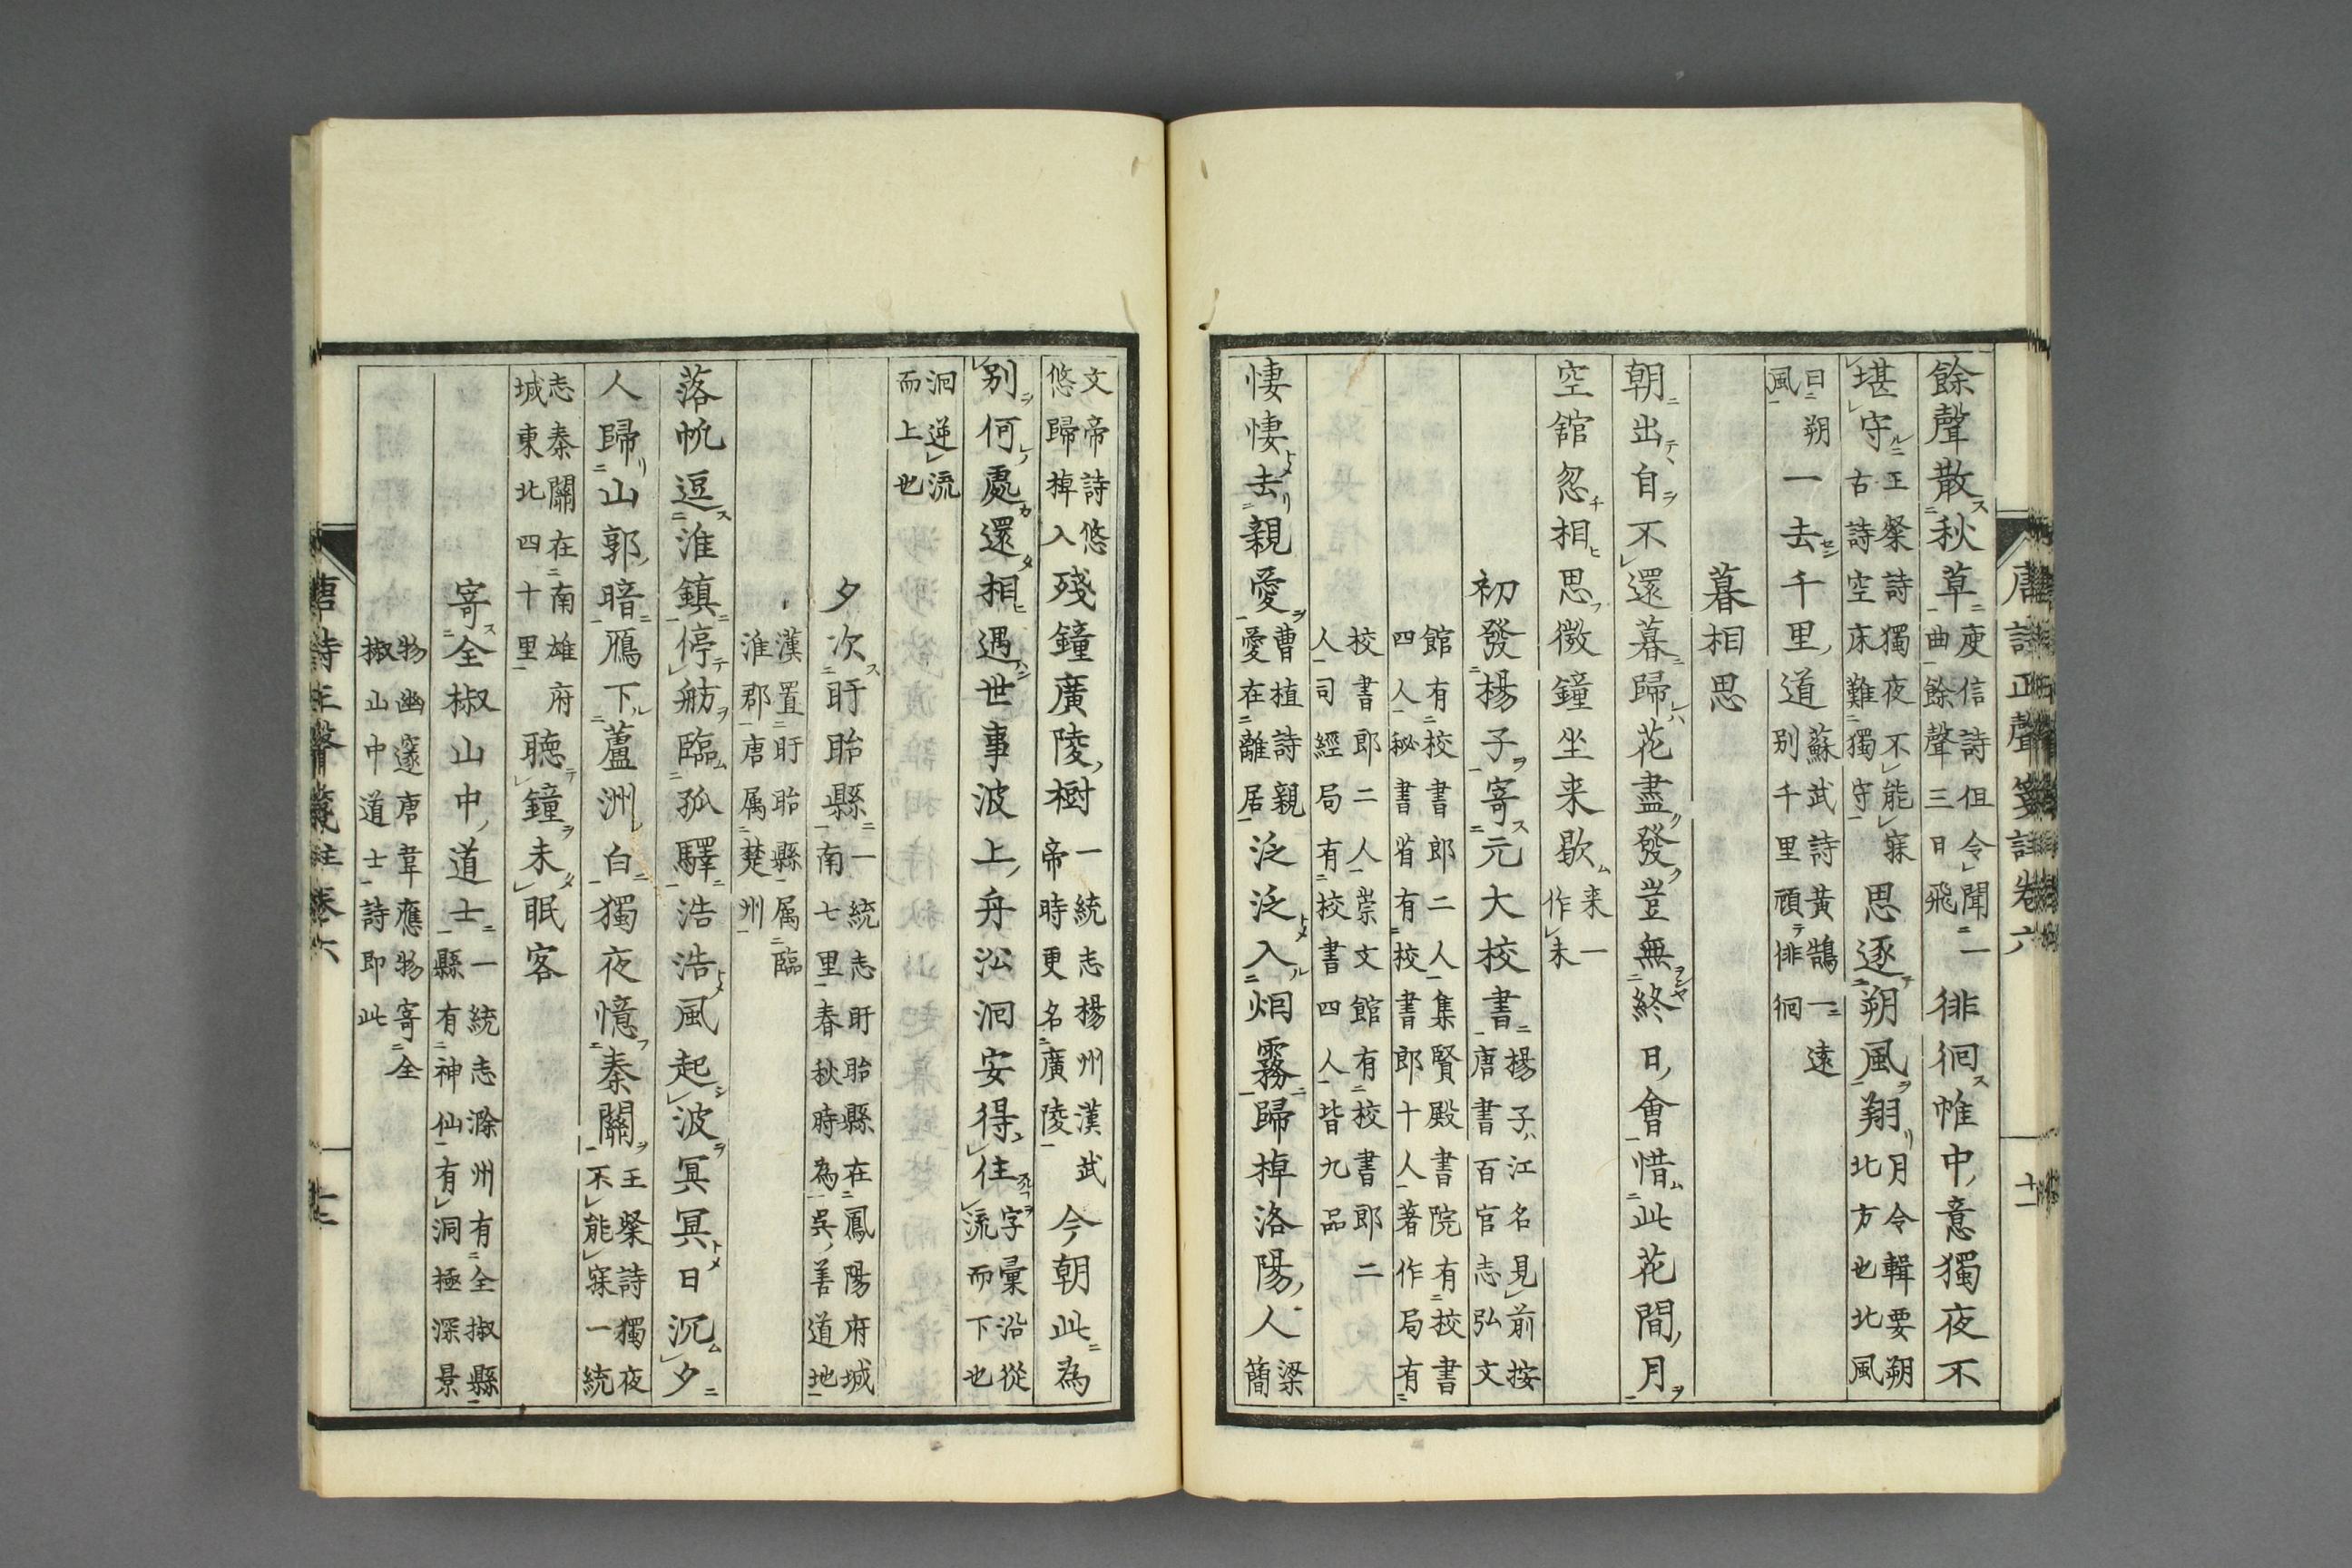 唐詩正聲箋註卷六 十一
餘聲散秋草庾信詩但令聞一曲餘聲三日飛徘徊帷中意獨夜不
堪守王粲詩獨夜不能寐古詩空床難獨守思逐朔風翔月令輯要朔北方也北風
曰朔風一去千里道蘇武詩黃鵠一遠別千里頋徘徊
暮相思
朝出自不還暮歸花盡發豈無終日會惜此花間月
空舘忽相思微鐘坐来歇来一作未
初發楊子寄元大校書楊子江名見前按唐書百官志弘文
館有校書郎二人集賢殿書院有校書四人秘書省有校書郎十人著作局有
校書郎二人崇文館有校書郎二人司經局有校書四人皆九品
悽悽去親愛曹植詩親愛在離居泛泛入烟霧歸棹洛陽人梁簡
文帝詩悠悠歸棹入殘鐘廣陵樹一統志楊州漢武帝時更名廣陵今朝此為
別何處還相遇世事波上舟㳂洄安得住字彙沿從流而下也
洄逆流而上也
夕次盱眙縣一統志盱眙縣在鳳陽府城南七里春秋時為吳善道地
漢置盱眙縣属臨淮郡唐属楚州
落帆逗淮鎮停舫臨孤驛浩浩風起波冥冥日沉夕
人歸山郭暗鴈下蘆洲白獨夜憶秦關王粲詩獨夜不能寐一統
志秦關在南雄府城東北四十里聴鐘未眠客
寄全椒山中道士一統志滁州有全椒縣縣有神仙有洞極深景
物幽邃唐韋應物寄全椒山中道士詩即此
唐詩正聲箋註卷六